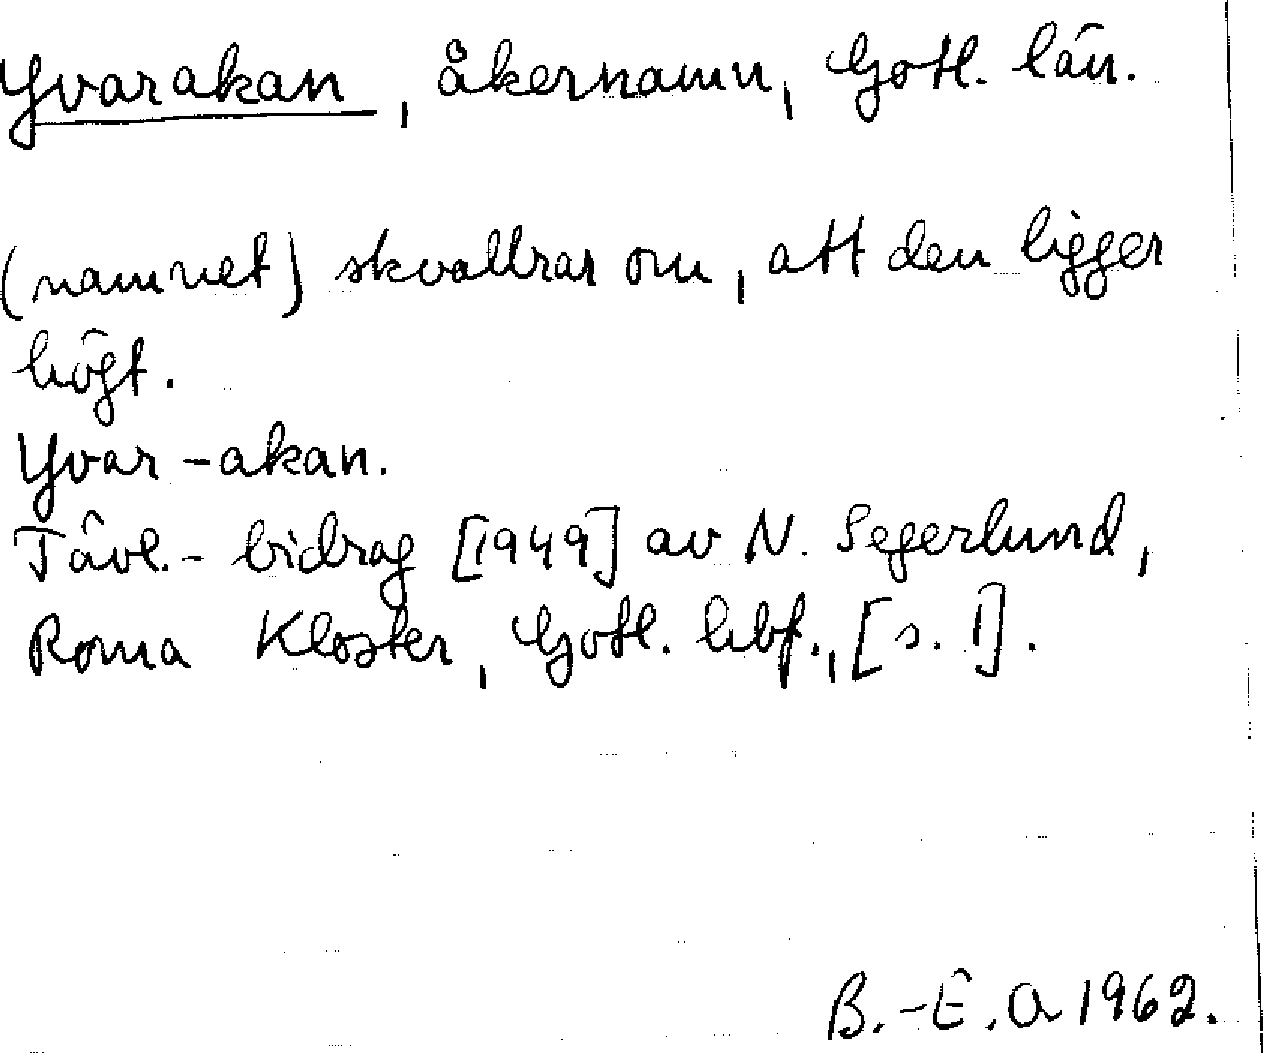 Yvarakan, åkernamn, Gotl. län.
(namnet) skvallrar om, att den ligger
högt.
Yvar-akan.
Tävl.-bidrag [1949] av N. Segerlund,
Roma Kloster, Gotl. hbf., [s. 1].
B.-E.A 1962.